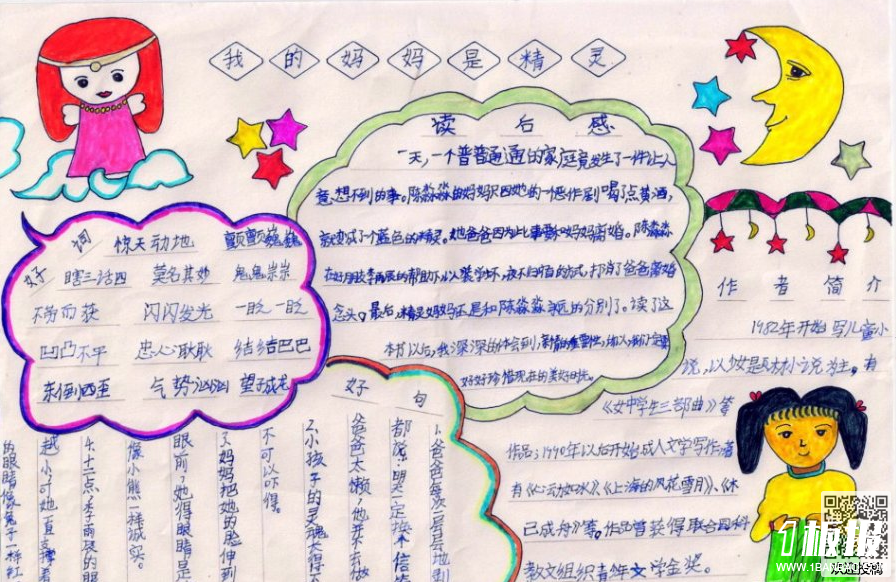 我的妈妈是精灵
读后感
一天,一个普普通通的家庭竟发生了一件让人
竟想不到的事。陈淼淼的妈妈只因她的一个恶作剧喝了点黄酒,
就变成了一个蓝色的精灵。她爸爸因为此事要和妈妈离婚。陈淼淼
在好朋友李雨辰的帮助下,以装学坏,夜不归宿的方式,打消了爸爸离婚
念头,最后,精灵妈妈还是和陈淼淼永远的分别了。读了这
本书以后,我深深的体会到,亲情的重要性,
好好珍惜现在的美好时光。
好词
惊天动地 颤颤巍巍
瞎三话四 莫名其妙 鬼鬼祟祟
不劳而获 闪闪发光 一眨一眨
凹凸不平 忠心耿耿 结结巴巴
东倒西歪 气势汹汹 望子成龙
作者简介
1982年开始写儿童小
说,以少女题材小说为主。有
《女中学生三部曲》等
作品;1990年以后开始成人文学写作,著
有《心动如水》、《上海的风花雪月》、《木
已成舟》等。作品曾获得联合国科
教文组织青年文学金奖。
好句
1.爸爸每次
都说:明天一定
爸爸太懒,他要去做
2.小孩子的灵魂
不可以吓得。
3.妈妈把她的脸伸到
眼前,她得眼睛是
像小熊一样诚实。
4.十二点,李雨辰的眼
越小,可她一直支撑着
的眼睛像兔子一样红
1板报
WWW.1BANBAO.COM
欢迎投稿